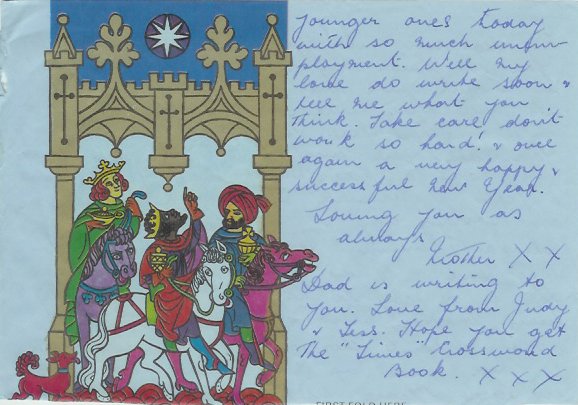 younger ones today
with so much unem-
ployment. Well my
love do write soon &
tell me what you
think. Take care don't
work so hard! & once
again a very happy &
successful New Year.
Loving you as
always
Mother X X
Dad is writing to
you. Love from Judy
& Tess. Hope you get
The "Times" Crossword
Book. X X X
FIRST FOLD HERE